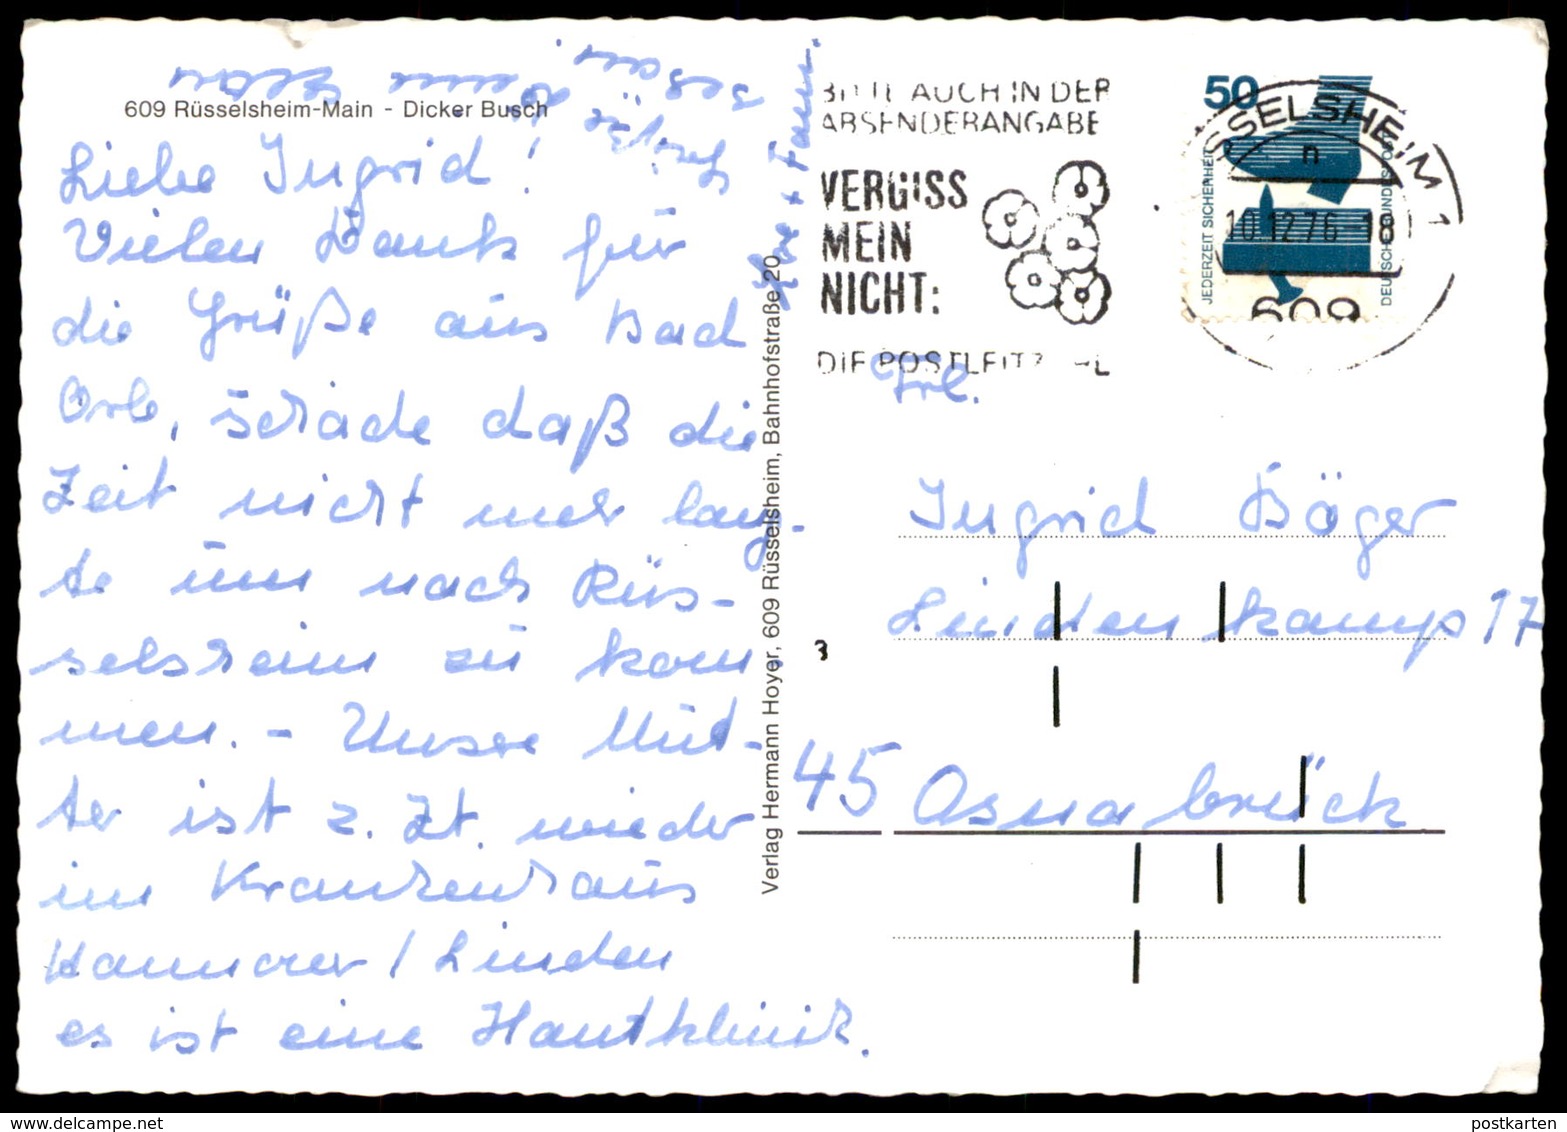 609 Rüsselsheim-Main - Dicker Busch
Liebe Ingrid!
Vielen Dank für
die Grüße aus Bad
Orb, schade daß die
Zeit nicht mehr lang-
te um nach Rüs-
selsheim zu kom
men. - Unsere Mut-
ter ist z. Zt. wieder
im Krankenhaus
Hannover / Linden
es ist eine Hautklinik.
Verlag Hermann Hoyer, 609 Rüsselsheim, Bahnhofstraße 20
BITTE AUCH IN DER
ABSENDERANGABE
VERGISS
MEIN
NICHT:
DIE POSTLEITZAHL
50
JEDERZEIT SICHERHEIT
DEUTSCHE BUNDESPOST
RÜSSELSHEIM 1
n
10.12.76-18
609
Frl.
Ingrid Böger
Lindenkamp 17
45 Osnabrück
3
www.delcampe.net
postkarten